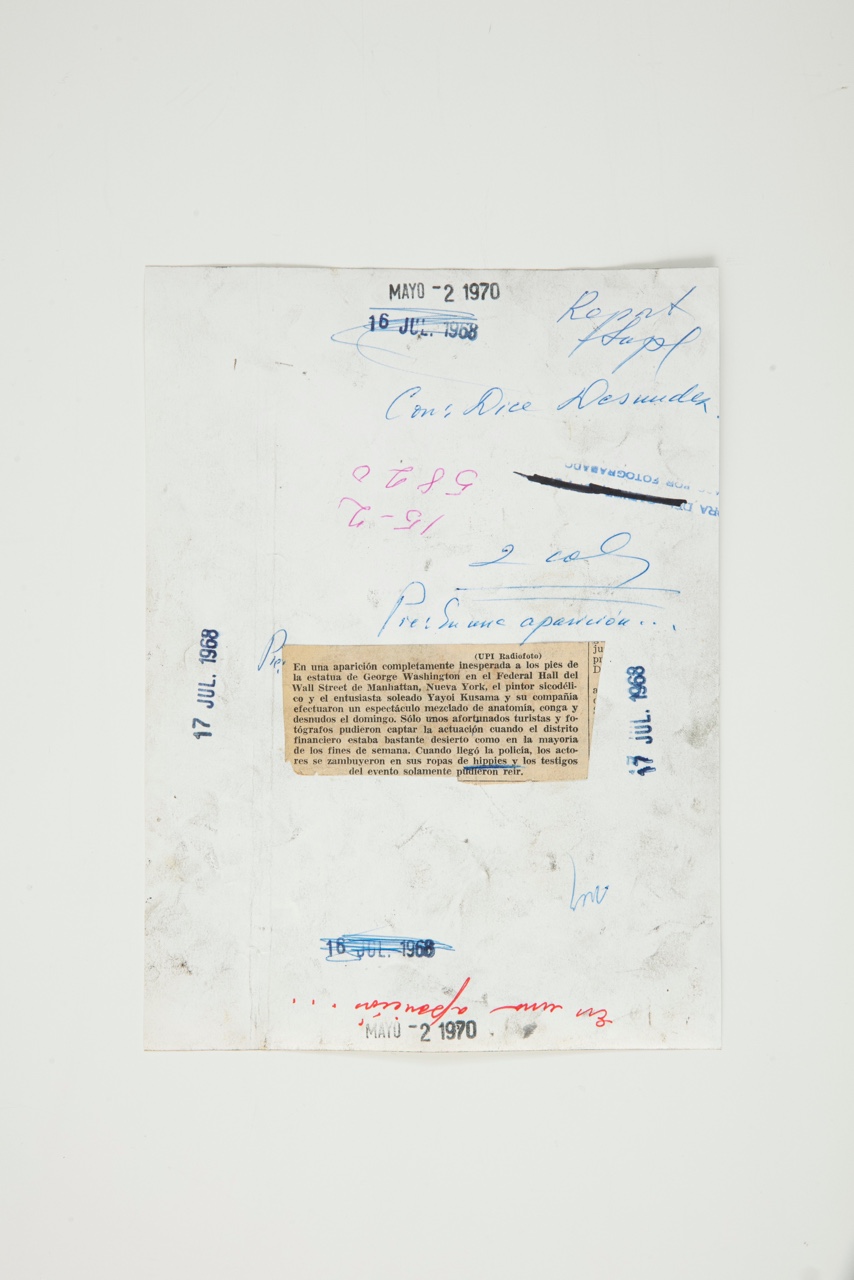 MAYO - 2 1970
16 JUL. 1968
Con: Dice Desnudez.
POR FOTOGRABADO
5820
15-2
2 col
Pie: En una aparición...
17 JUL. 1968
Pie:
(UPI Radiofoto)
En una aparición completamente inesperada a los pies de
la estatua de George Washington en el Federal Hall del
Wall Street de Manhattan, Nueva York, el pintor sicodéli-
co y el entusiasta soleado Yayoi Kusama y su compañía
efectuaron un espectáculo mezclado de anatomía, conga y
desnudos el domingo. Sólo unos afortunados turistas y fo-
tógrafos pudieron captar la actuación cuando el distrito
financiero estaba bastante desierto como en la mayoría
de los fines de semana. Cuando llegó la policía, los acto-
res se zambuyeron en sus ropas de hippies y los testigos
del evento solamente pudieron reir.
ju
pr
D
17 JUL. 1968
16 JUL. 1968
En una aparición...
MAYO - 2 1970